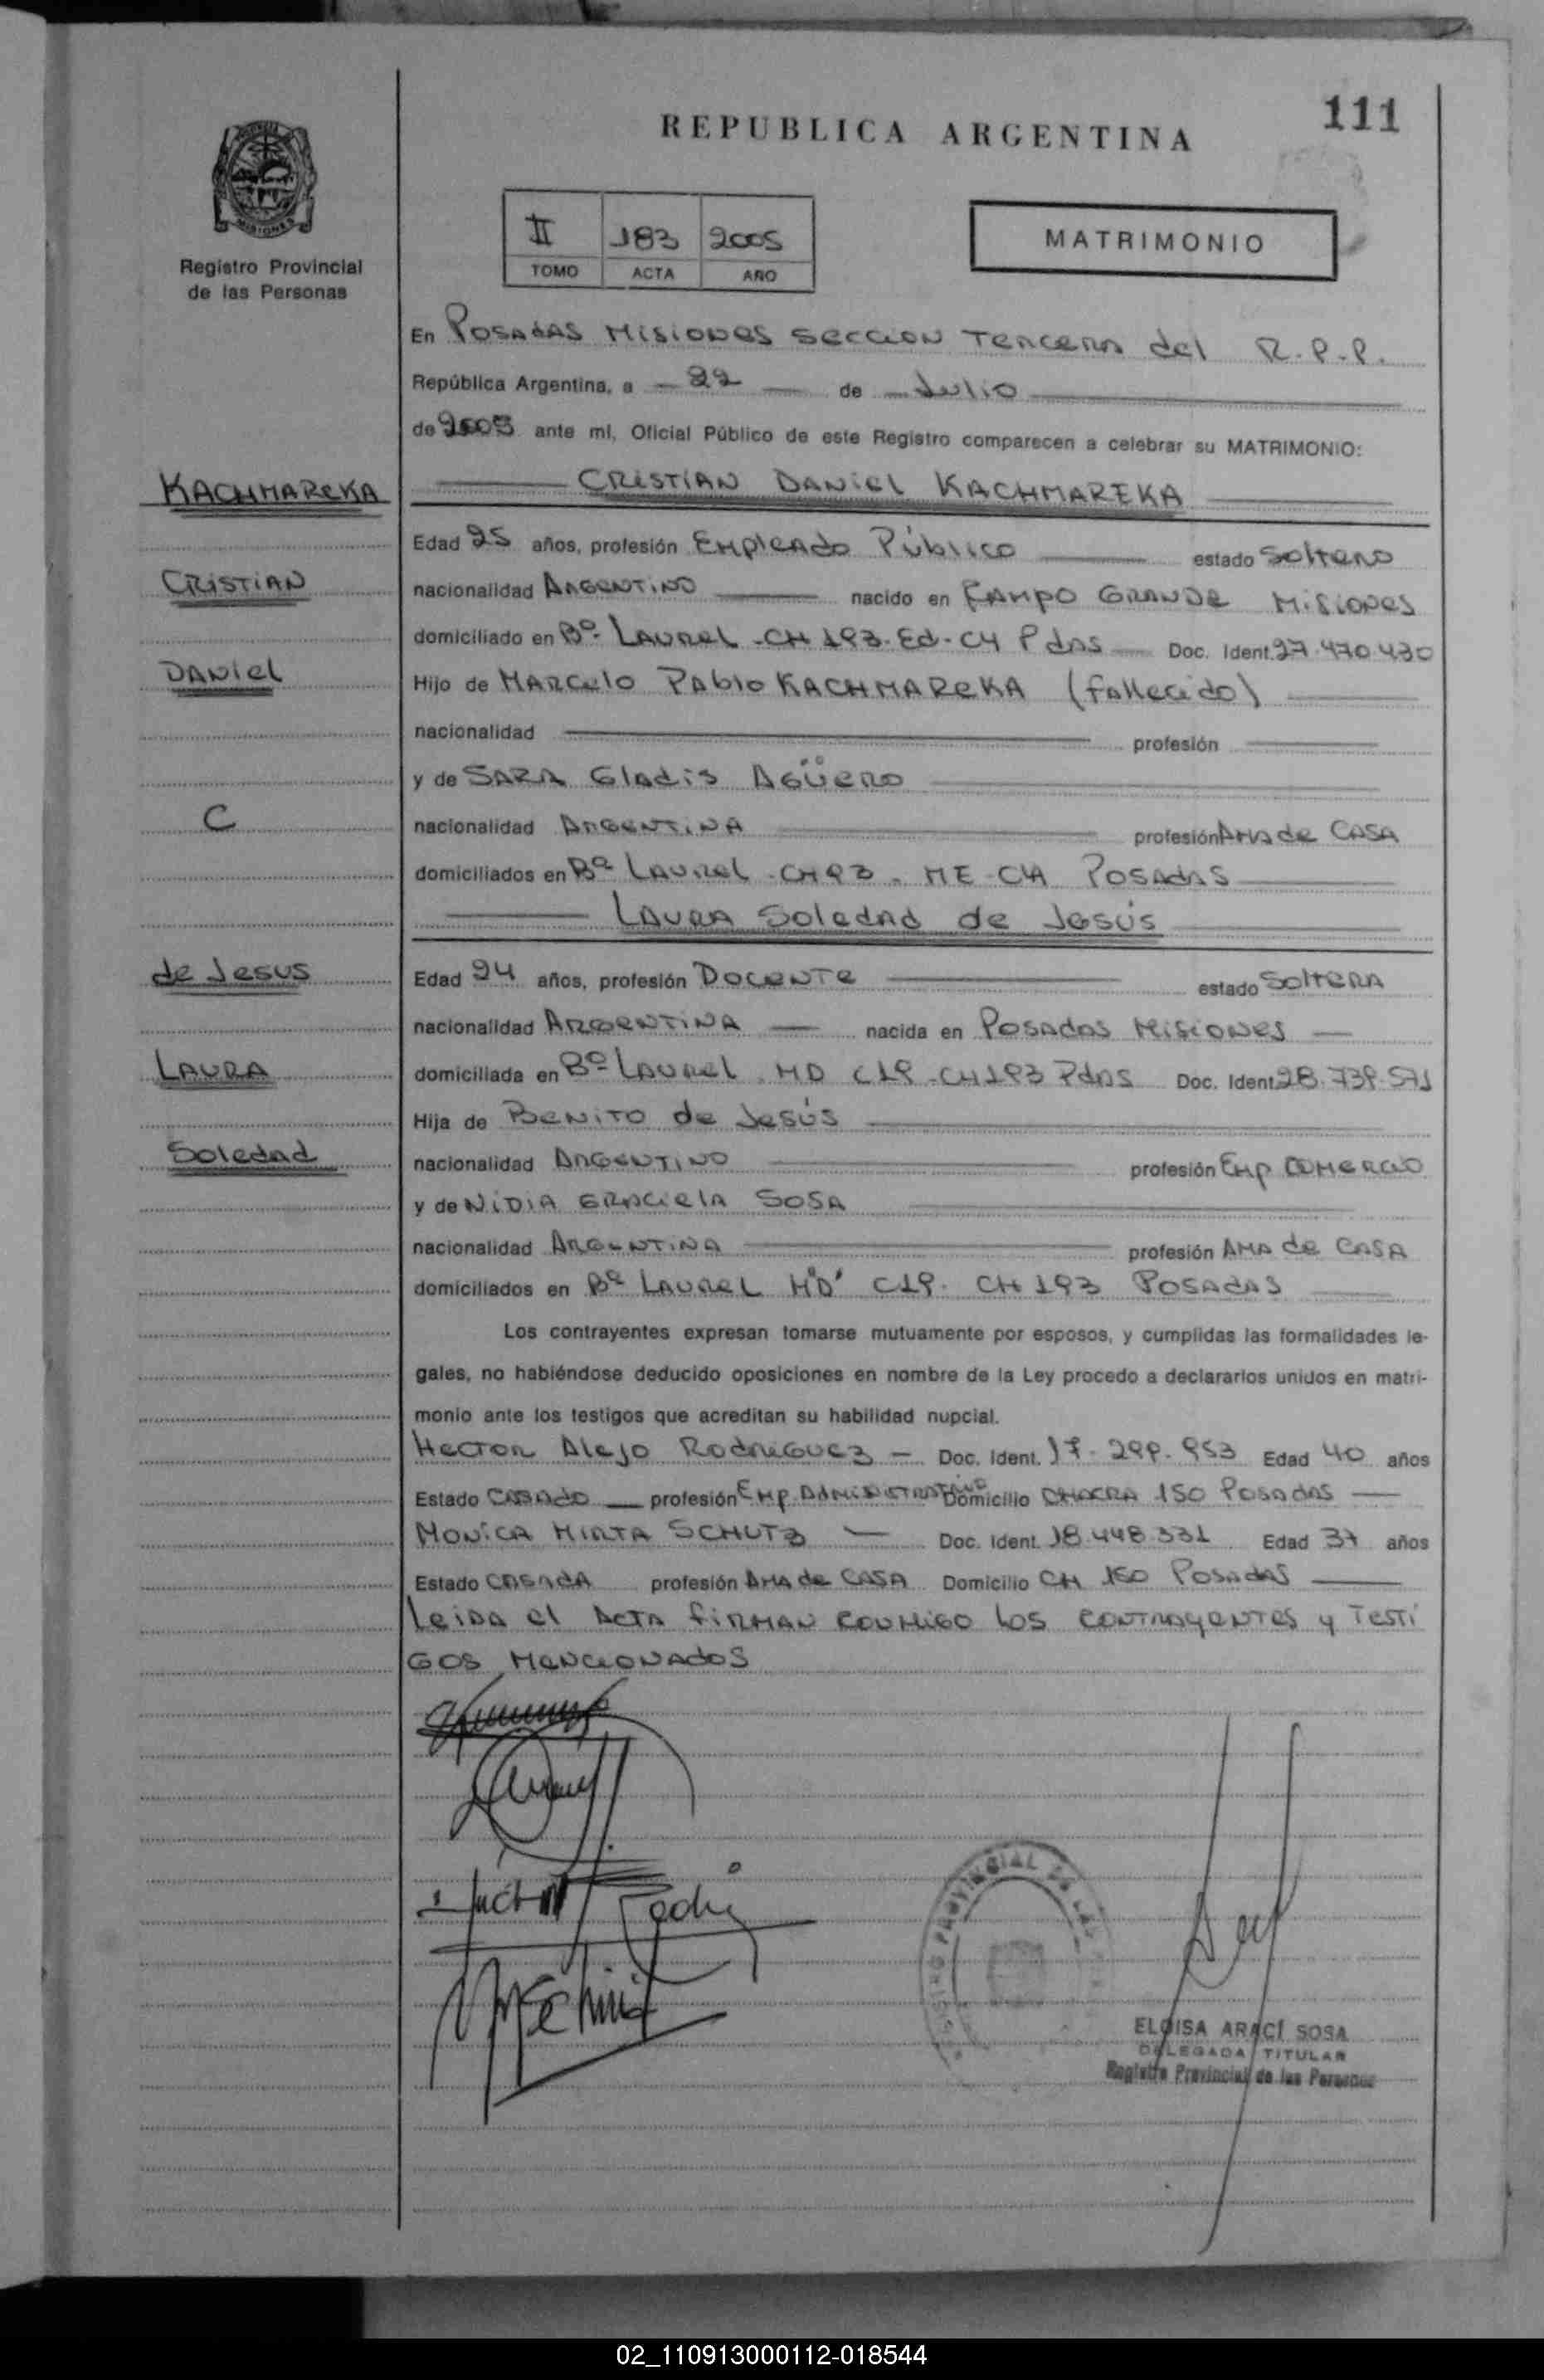 111
REPUBLICA ARGENTINA
MISIONES
Registro Provincial
de las Personas
II 183 2005
TOMO ACTA AÑO
MATRIMONIO
En POSADAS MISIONES SECCION TERCERA del R.P.P.
República Argentina, a 22 de Julio
de 2005 ante mí, Oficial Público de este Registro comparecen a celebrar su MATRIMONIO:
KACHMAREKA
CRISTIAN DANIEL KACHMAREKA
Edad 25 años, profesión EMPLEADO PÚBLICO estado SOLTERO
CRISTIAN
nacionalidad ARGENTINO nacido en CAMPO GRANDE MISIONES
domiciliado en Bº LAUREL -CH 193-Ed-C4 Pdas Doc. Ident. 27.470.430
DANIEL
Hijo de MARCELO PABLO KACHMAREKA (Fallecido)
nacionalidad profesión
y de SARA GLADIS AGÜERO
C
nacionalidad ARGENTINA profesión AMA de CASA
domiciliados en Bº LAUREL POSADAS
LAURA SOLEDAD de JESÚS
de JESUS
Edad 24 años, profesión DOCENTE estado SOLTERA
nacionalidad ARGENTINA nacida en POSADAS MISIONES
LAURA
domiciliada en Bº LAUREL MD C19-CH193 Pdas Doc. Ident. 28.739.571
Hija de BENITO de JESÚS
SOLEDAD
nacionalidad ARGENTINO profesión EMP COMERCIO
y de NIDIA GRACIELA SOSA
nacionalidad ARGENTINA profesión AMA de CASA
domiciliados en Bº LAUREL M"D" C19- CH 193 POSADAS
Los contrayentes expresan tomarse mutuamente por esposos, y cumplidas las formalidades le-
gales, no habiéndose deducido oposiciones en nombre de la Ley procedo a declararlos unidos en matri-
monio ante los testigos que acreditan su habilidad nupcial.
HECTOR ALEJO RODRIGUEZ Doc. Ident. 17.299.953 Edad 40 años
Estado CASADO profesión EMP. ADMINISTRATIVO Domicilio CHACRA 150 POSADAS
MONICA MIRTA SCHUTZ Doc. Ident. 18.448.331 Edad 37 años
Estado CASADA profesión AMA de CASA Domicilio CH 150 POSADAS
LEIDA el ACTA FIRMAN CONMIGO LOS CONTRAYENTES y TESTI
GOS MENCIONADOS
ELOISA ARACI SOSA
DELEGADA TITULAR
Registro Provincial de las Personas
02_110913000112-018544